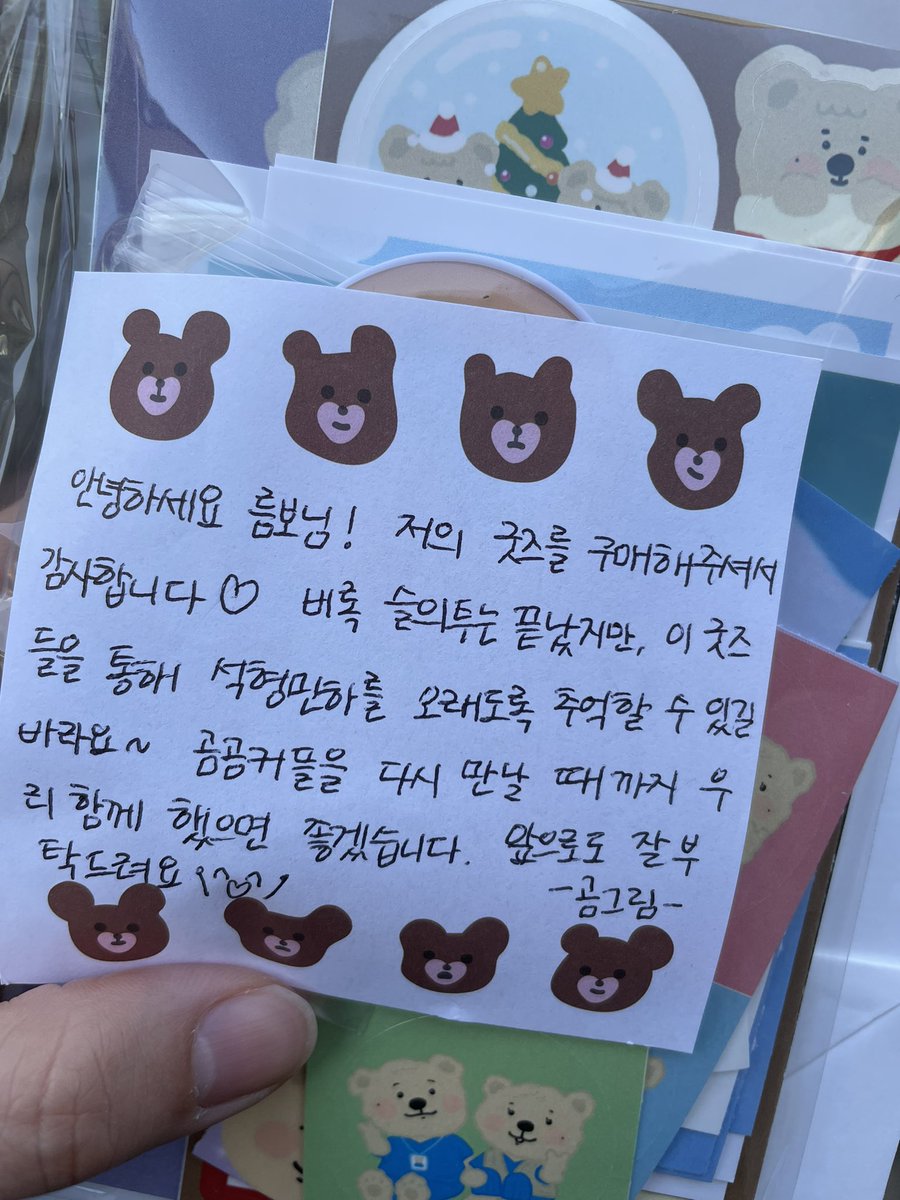 안녕하세요 름보님! 저의 굿즈를 구매해주셔서
감사합니다♡ 비록 슬의투는 끝났지만, 이 굿즈
들을 통해 석형민하를 오래도록 추억할 수 있길
바라요~ 곰곰커플을 다시 만날 때까지 우
리 함께 했으면 좋겠습니다. 앞으로도 잘 부
탁드려요
-곰그림-